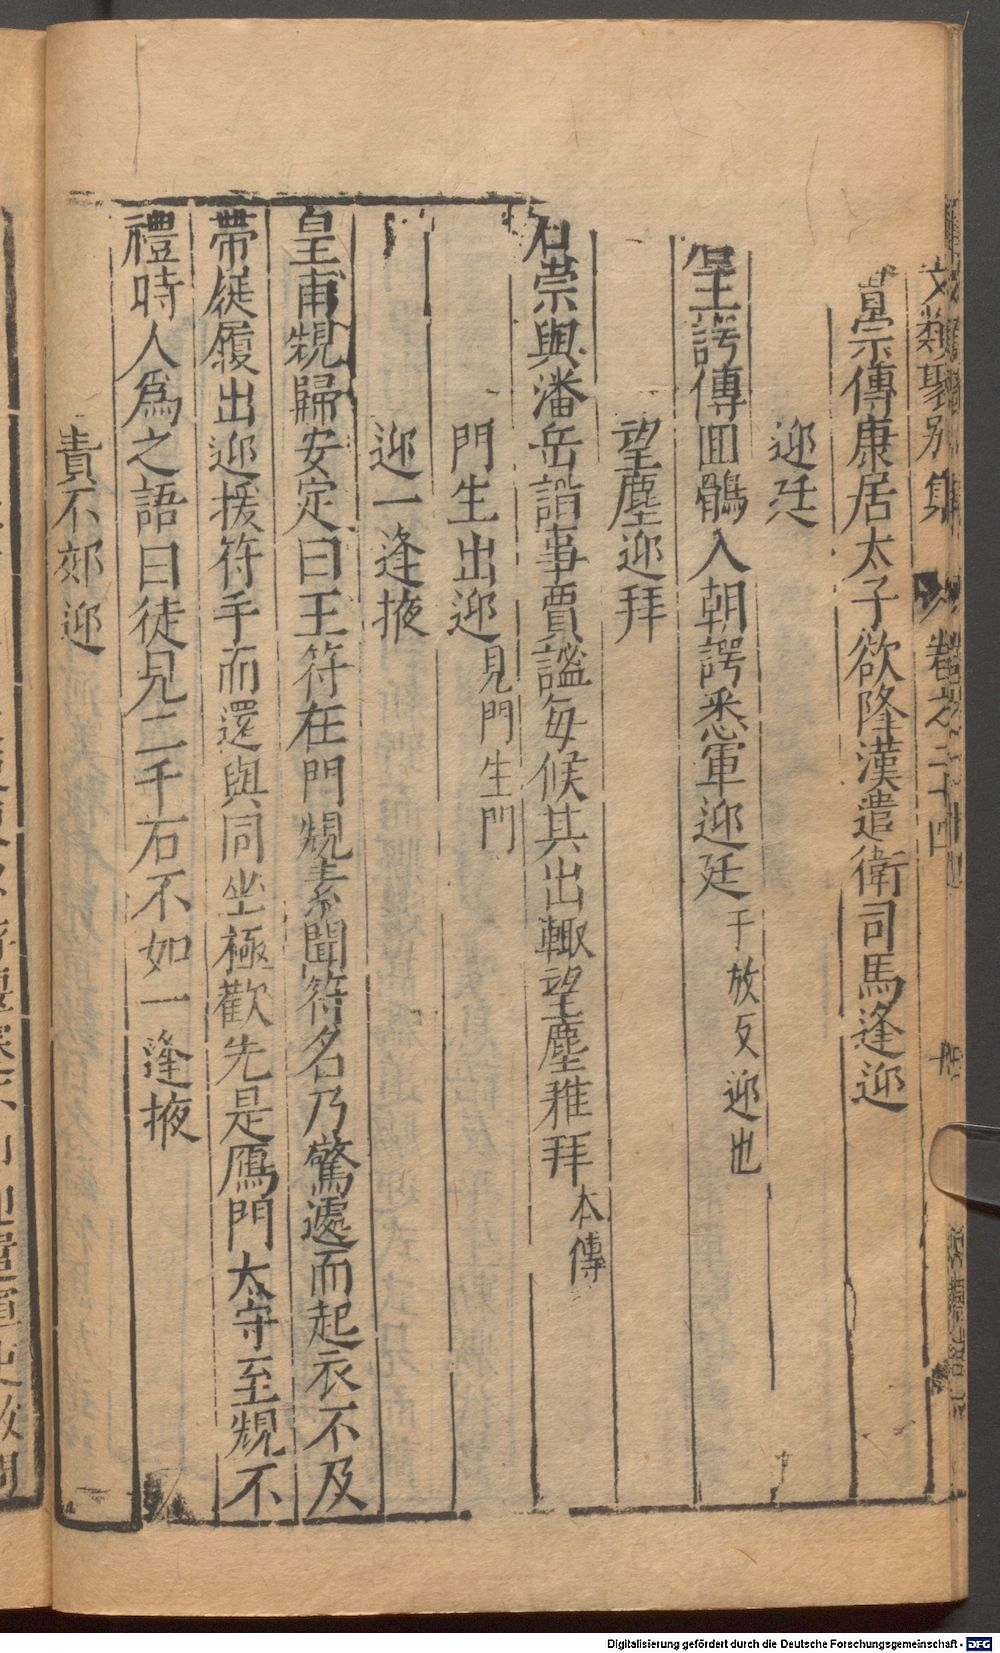 文類聚别集 卷之二十四
宗傳康居太子欲隆漢遣衛司馬逢迎
迎廷
王諤傳囬鶻入朝諤悉軍迎廷 于放反迎也
望塵迎拜
石崇與潘岳謟事賈謐每候其出輙望塵雅拜 本傳
門生出迎 見門生門
迎一逢掖
皇甫䂓歸安定曰王符在門䂓素聞符名乃驚遽而起衣不及
帶屣履出迎援符手而還與同坐極歡先是鴈門太守至䂓不
禮時人為之語曰徒見二千石不如一逢掖
責不郊迎
Digitalisierung gefördert durch die Deutsche Forschungsgemeinschaft - DFG